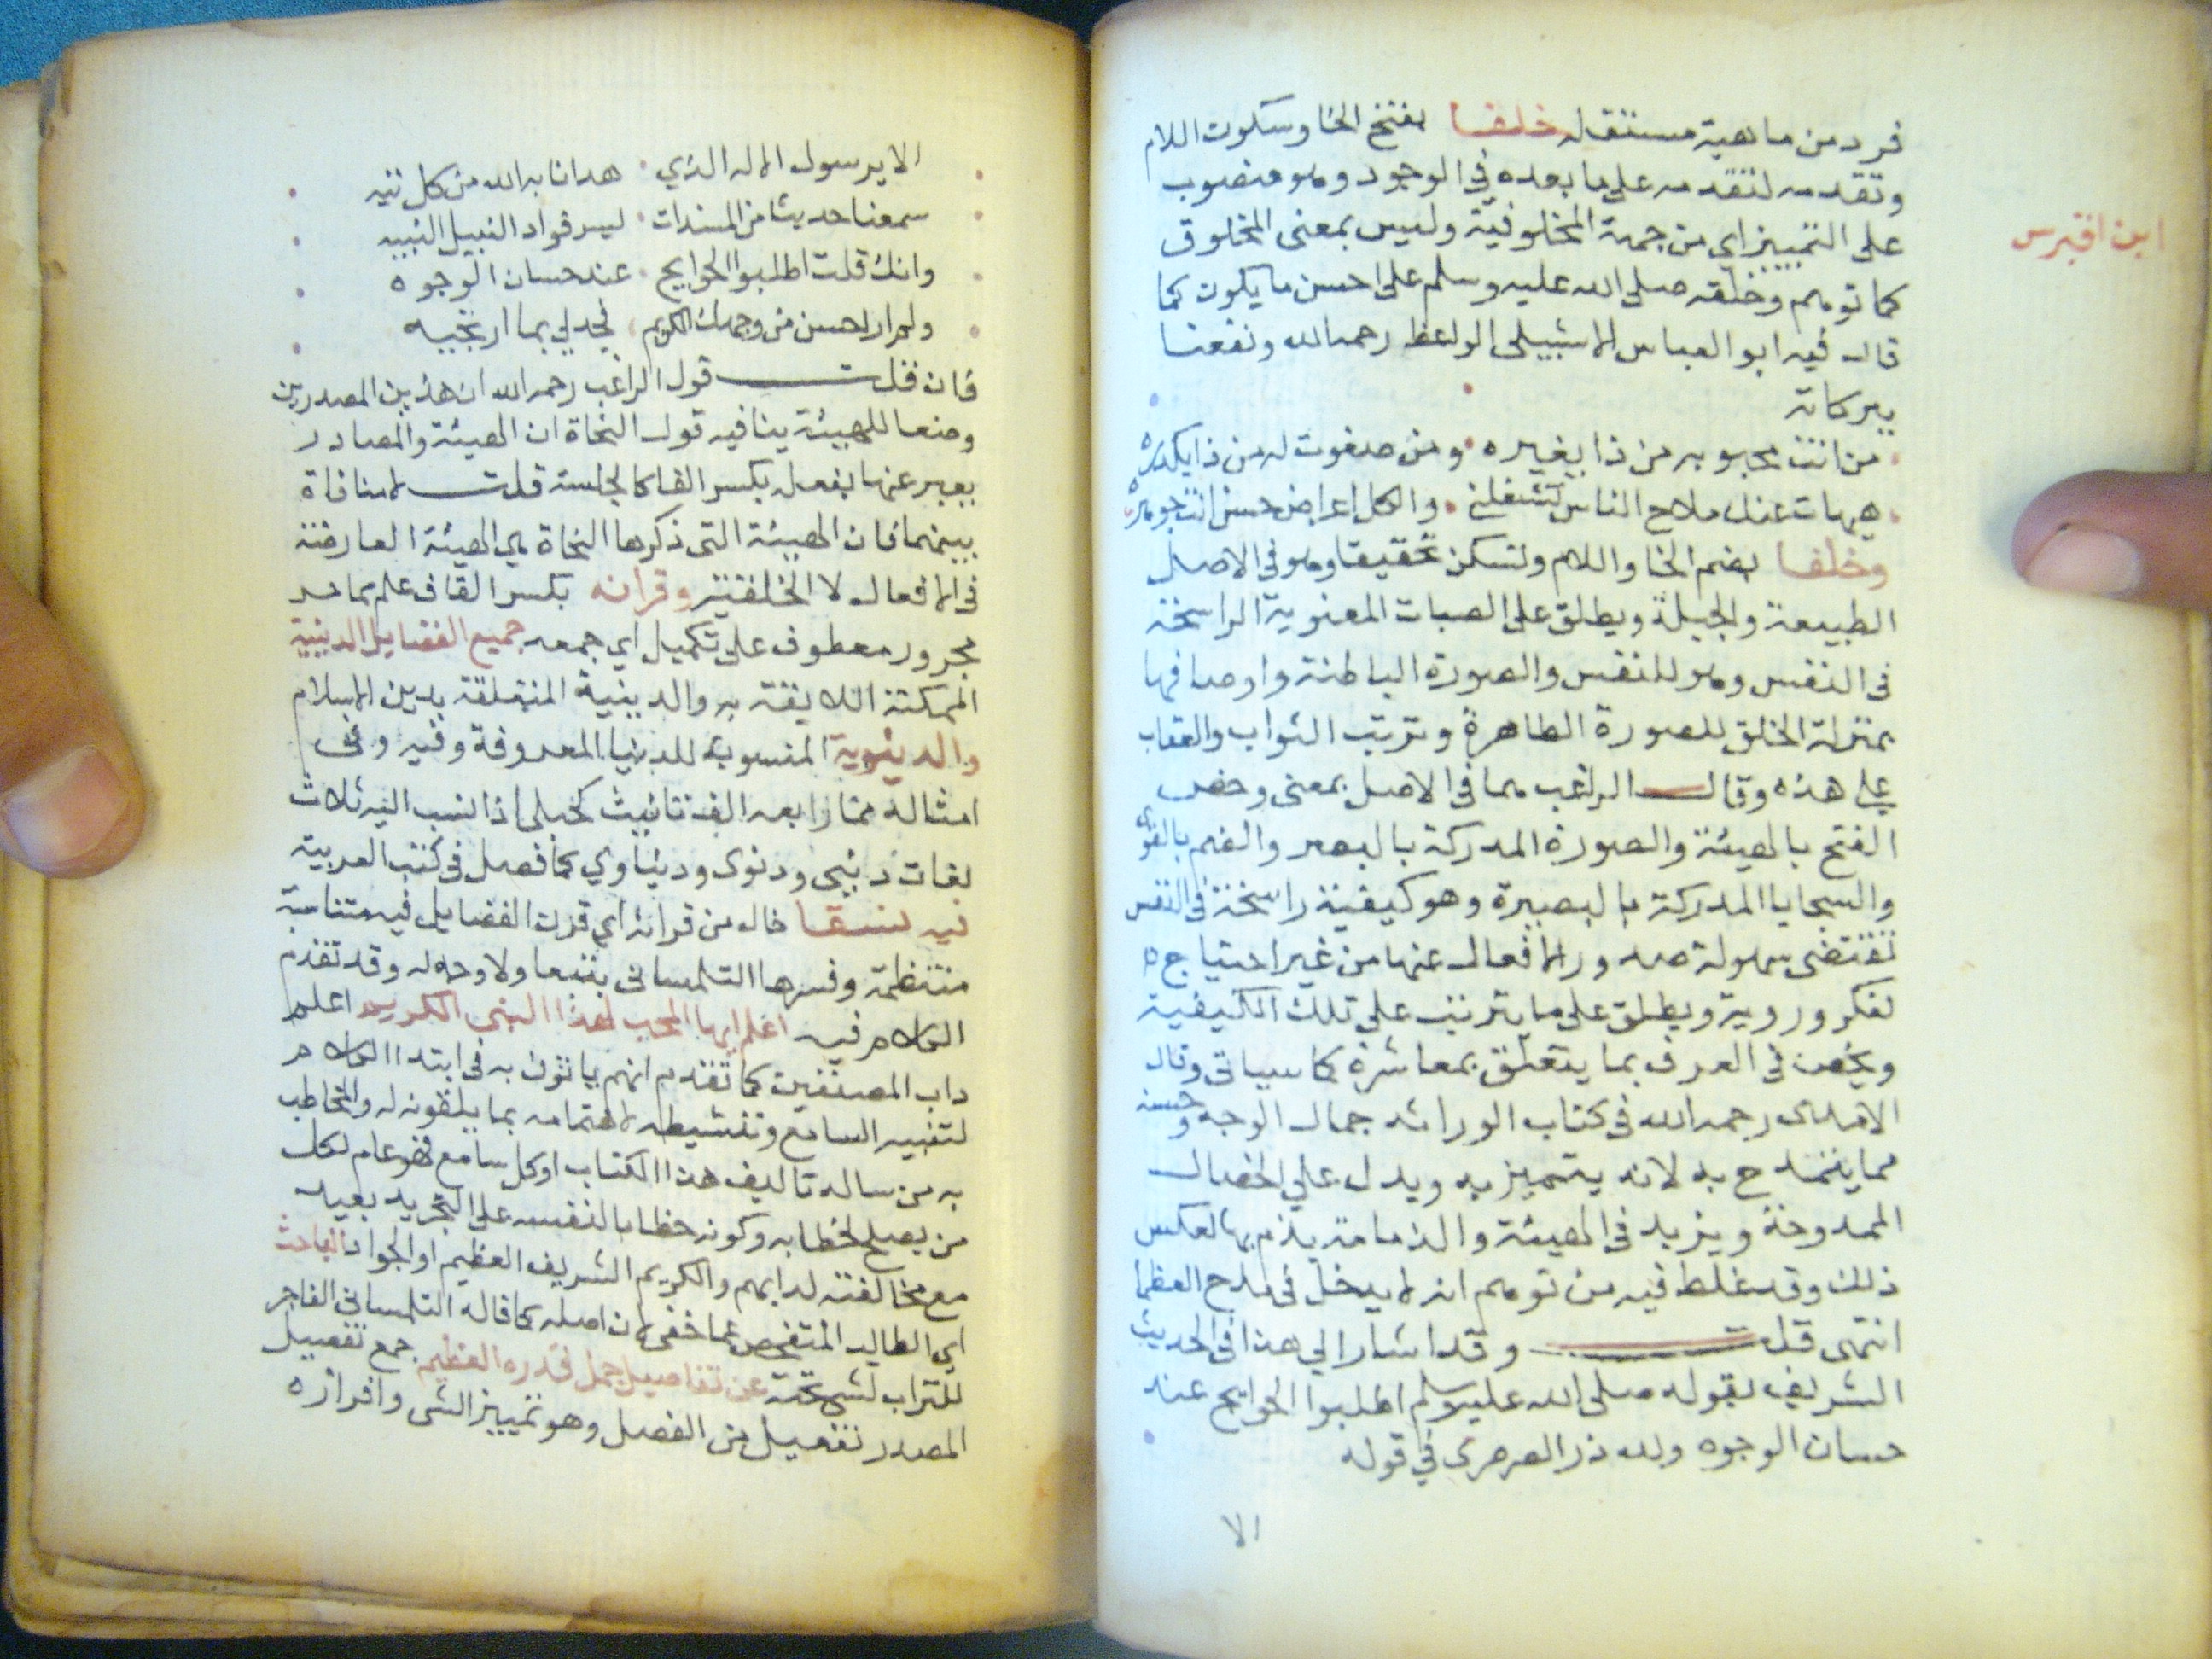 فرد من ماهية مستقله خلقا بفتح الخا وسكون اللام
وتقدمه لتقدمه على ما بعده في الوجود وهو منصوب
على التمييز اي من جهة المخلوقية وليس بمعنى المخلوق
ابن اقبرس
كما توهم وخلقه صلى الله عليه وسلم على احسن ما يكون كما
قال فيه ابو العباس الاشبيلى الواعظ رحمه الله ونفعنا
ببركاته
من انت محبوبه من ذا يغيره ومن صفوت له من ذا يكدره
هيهات عنك ملاح الناس تشغلني والكل اعراض حسن انت جوهره
وخلقا بضم الخا واللام وتسكن تحقيقا وهو في الاصل
الطبيعة والجبلة ويطلق على الصبات المعنوية الراسخة
في النفس وهو للنفس والصورة الباطنة واوصافها
بمنزلة الخلق للصورة الظاهرة وترتب الثواب والعقاب
على هذه وقال الراغب هما في الاصل بمعنى وخص
الفتح بالهيئة والصورة المدركة بالبصر والضم بالقوى
والسجايا المدركة بالبصيرة وهو كيفية راسخة في النفس
تقتضى سهولة صدور الافعال عنها من غير احتياج
لفكر وروية ويطلق على ما يترتب على تلك الكيفية
ويخص في العرف بما يتعلق بمعاشرة كما سياتى وقال
الامدى رحمه الله في كتاب الوراثه جمال الوجه وحسنه
مما يتمدح به لانه يتميز به ويدل علي الخصال
الممدوحة ويزيد في الهيئة والذمامة يذم بها لعكس
ذلك وقد غلط فيه من توهم انه لا يدخل في مدح العظما
انتهى قلت وقد اشار الي هذا في الحديث
الشريف بقوله صلى الله عليه وسلم اطلبوا الحوايج عند
حسان الوجوه ولله در الصرصرى في قوله
الا
الا يرسول الاله الذي هدانا به الله من كل تيه
سمعنا حديثا من المسندات ليسر فواد النبيل النبيه
وانك قلت اطلبوا الحوايج عند حسان الوجوه
ولم ار احسن من وجهك الكريم فجد لي بما ارتجيه
فان قلت قول الراغب رحمه الله ان هذين المصدرين
وضعا للهيئة ينافيه قول النحاة ان الهيئة والمصادر
يعبر عنها بفعله بكسر الفا كالجلسة قلت لا منافاة
بينهما فان الهيئة التى ذكرها النحاة هي الهيئة العارضة
في الافعال لا الخلقتين وقرانه بكسر القاف علم مما مر
مجرور معطوف على تكميل اي جمعه جميع الفضايل الدينية
الممكنة اللايقة به والدينية المتعلقة بدين الاسلام
والدنيوية المنسوبة للدنيا المعروفة وفيه وفى
امثاله مما رابعه الف تانيث كحبلى اذا نسب اليه ثلاث
لغات دنيى ودنوى ودنياوي كما فصل في كتب العربية
فيه نسقا حال من قرانه اي قرن الفضايل فيه متناسبة
منتظمة وفسرها التلمسانى بتبعا ولا وجه له وقد تقدم
الكلام فيه اعلم ايها المحب لهذا النبى الكريم اعلم
داب المصنفين كما تقدم انهم ياتون به في ابتدا الكلام
لتنبيه السامع وتنشيطه لاهتمامه بما يلقونه له والمخاطب
به من ساله تاليف هذا الكتاب او كل سامع فهو عام لكل
من يصلح لخطابه وكونه خطابا لنفسه على التجريد بعيد
مع مخالفته لدابهم والكريم الشريف العظيم او الجواد الباحث
اي الطالب المتفحص عما خفى لان اصله كما قاله التلمسانى الفاجر
للتراب لشي تحته عن تفاصيل جمل قدره العظيم جمع تفصيل
المصدر تفصيل من الفصل وهو تمييز الشى وافرازه